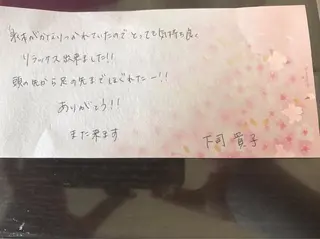 身体がかなりつかれていたのでとっても気持ち良く
リラックス出来ました!!
頭の先から足の先までほぐれたー!!
ありがとう!!
また来ます
下司 貴子